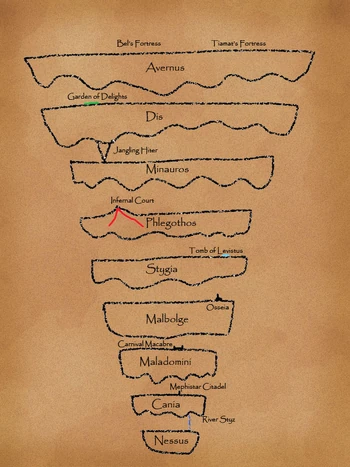 Bel's Fortress Tiamat's Fortress
Avernus
Garden of Delights
Dis
Jangling Hiter
Minauros
Infernal Court
Phlegothos
Tomb of Levistus
Stygia
Osseia
Malbolge
Carnival Macabre
Maladomini
Mephistar Citadel
Cania
River Styx
Nessus